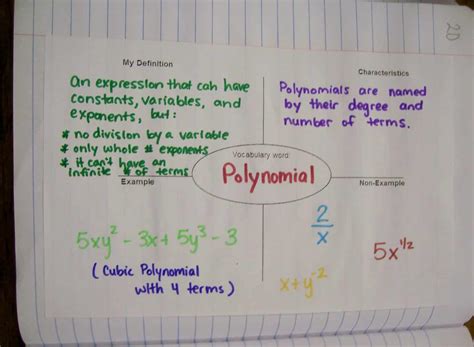 20
My Definition
An expression that can have
constants, variables, and
exponents, but:
* no division by a variable
* only whole # exponents
* it can't have an
infinite # of terms
Characteristics
Polynomials are named
by their degree and
number of terms.
Vocabulary word:
Polynomial
Example
5xy² - 3x + 5y³ - 3
(Cubic Polynomial
with 4 terms)
Non-Example
2/x
5x^1/2
x + y^-2